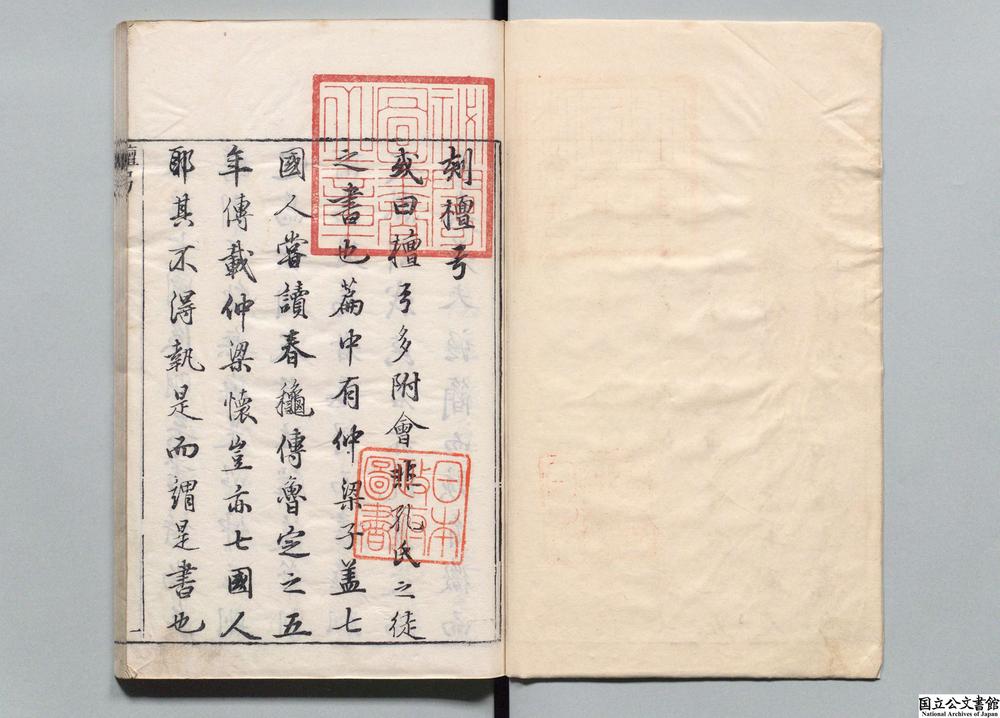 刻檀弓
或曰檀弓多附會非孔氏之徒
之書也篇中有仲梁子盖七
國人嘗讀春龝傳魯定之五
年傳載仲梁懷豈亦七國人
耶其不得執是而謂是書也
檀弓
一
日本
政府
圖書
国立公文書館
National Archives of Japan